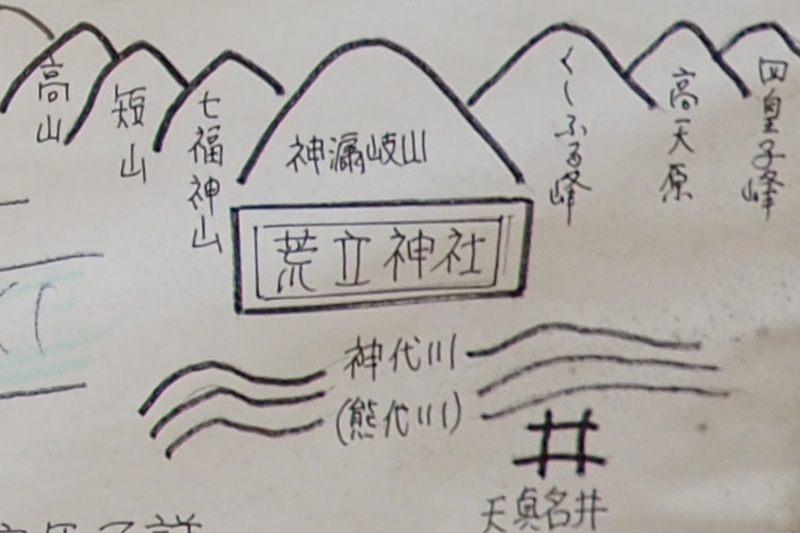 高山
短山
七福神山
神漏岐山
くしふる峰
高天原
四皇子峰
荒立神社
神代川
(熊代川)
天真名井